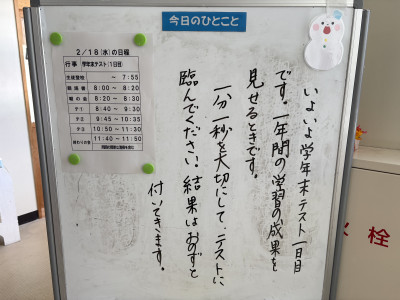 今日のひとこと
2/18(水)の日程
行事 学年末テスト(1日目)
生徒登校 ~ 7:55
朝読書 8:00 ~ 8:20
朝の会 8:20 ~ 8:30
テ1 8:40 ~ 9:30
テ2 9:45 ~ 10:35
テ3 10:50 ~ 11:30
帰りの会 11:40 ~ 11:50
いよいよ学年末テスト一日目
です。一年間の学習の成果を
見せるときです。
一分一秒を大切にして、テストに
臨んでください。結果はおのずと
付いてきます。
火栓